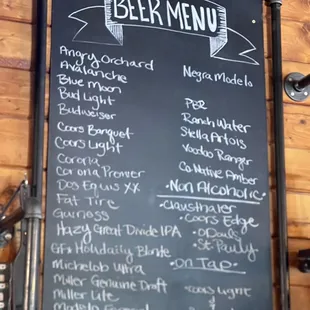 BEER MENU
Angry Orchard
Avalanche
Blue Moon
Bud Light
Budweiser
Coors Banquet
Coors Light
Corona
Corona Premier
Dos Equis XX
Fat Tire
Guiness
Hazy Great Divide IPA
Blonde
Michelob Ultra
Miller Genuine Draft
Miller Lite
Modelo
Negra Modelo
PBR
Ranch Water
Stella Artois
Voodoo Ranger
Co Native Amber
•Non Alcoholic•
•Clausthaler
•Coors Edge
•St. Pauly
•On Tap•
Coors Light